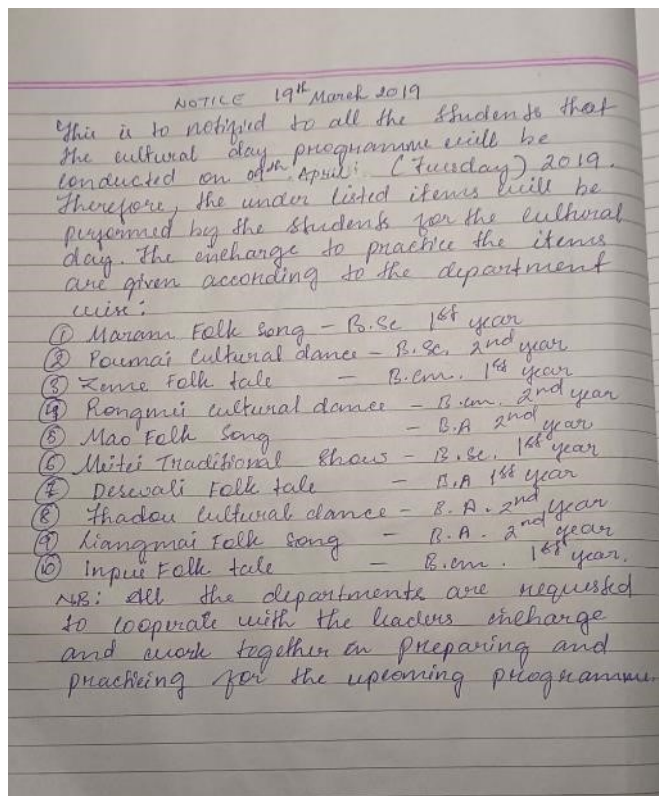 NOTICE 19th March 2019
This is to notified to all the students that
the cultural day programme will be
conducted on 09th April (Tuesday) 2019.
Therefore, the under listed items will be
performed by the students for the cultural
day. The encharge to practice the items
are given according to the department
wise:
① Maram Folk song - B.Sc 1st year
② Poumai Cultural dance - B.Sc. 2nd year
③ Zeme Folk tale - B.cm. 1st year
④ Rongmei cultural dance - B.cm. 2nd year
⑤ Mao Folk Song - B.A 2nd year
⑥ Meitei Traditional Shows - B.Sc. 1st year
⑦ Deswali Folk tale - B.A 1st year
⑧ Thadou Cultural dance - B.A. 2nd year
⑨ Liangmai Folk Song - B.A. 2nd year
⑩ Inpui Folk tale - B.cm. 1st year.
NB: All the departments are requested
to cooperate with the leaders encharge
and work together in preparing and
practicing for the upcoming programme.